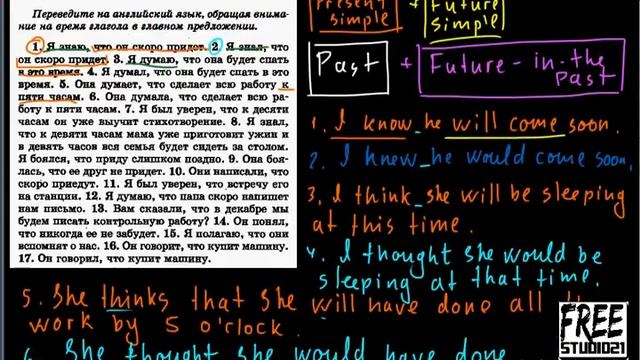 Переведите на английский язык, обращая внима-
ние на время глагола в главном предложении.
1. Я знаю, что он скоро придет. 2. Я знал, что
он скоро придет. 3. Я думаю, что она будет спать
в это время. 4. Я думал, что она будет спать в это
время. 5. Она думает, что сделает всю работу к
пяти часам. 6. Она думала, что сделает всю ра-
боту к пяти часам. 7. Я был уверен, что к десяти
часам он уже выучит стихотворение. 8. Я знал,
что к девяти часам мама уже приготовит ужин и
в девять часов вся семья будет сидеть за столом.
Я боялся, что приду слишком поздно. 9. Она боя-
лась, что ее друг не придет. 10. Они написали, что
скоро приедут. 11. Я был уверен, что встречу его
на станции. 12. Я думал, что папа скоро напишет
нам письмо. 13. Вам сказали, что в декабре мы
будем писать контрольную работу? 14. Он понял,
что никогда ее не забудет. 15. Я полагаю, что они
вспомнят о нас. 16. Он говорит, что купит машину.
17. Он говорил, что купит машину.
Present simple + Future simple
Past + Future-in-the Past
1. I know he will come soon.
2. I knew he would come soon.
3. I think she will be sleeping
at this time.
4. I thought she would be
sleeping at that time.
5. She thinks that she will have done all
work by 5 o'clock.
6. She thought she would have done
FREE
STUDIO21